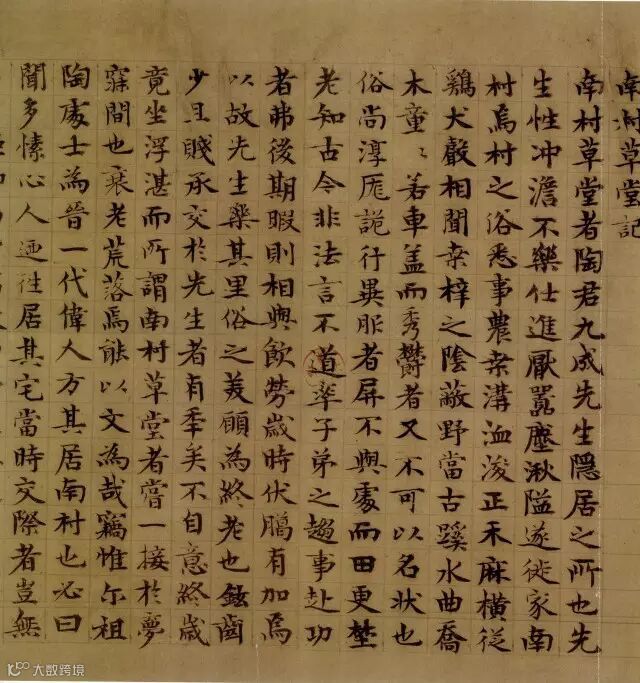 南村草堂記
南村草堂者陶君九成先生隱居之所也先
生性冲澹不樂仕進厭囂塵湫隘遂徙家南
村焉村之俗悉事農桒溝洫浚正禾麻橫從
鷄犬聲相聞桒梓之陰蔽野當古蹊水曲喬
木童〻若車盖而秀欝者又不可以名狀也
俗尚淳厖詭行異服者屏不與處而田更埜
老知古今非法言不道率子弟之趨事赴功
者弗後期暇則相與飲勞歲時伏臈有加焉
以故先生樂其里俗之美顧為終老也鉉齒
少且賤承交於先生者有年矣不自意終歲
竟坐浮湛而所謂南村草堂者嘗一接於夢
寐間也衰老荒落焉能以文為哉竊惟尔祖
陶處士為晉一代偉人方其居南村也必曰
聞多愫心人逦徃居其宅當時交際者豈無
大数跨境